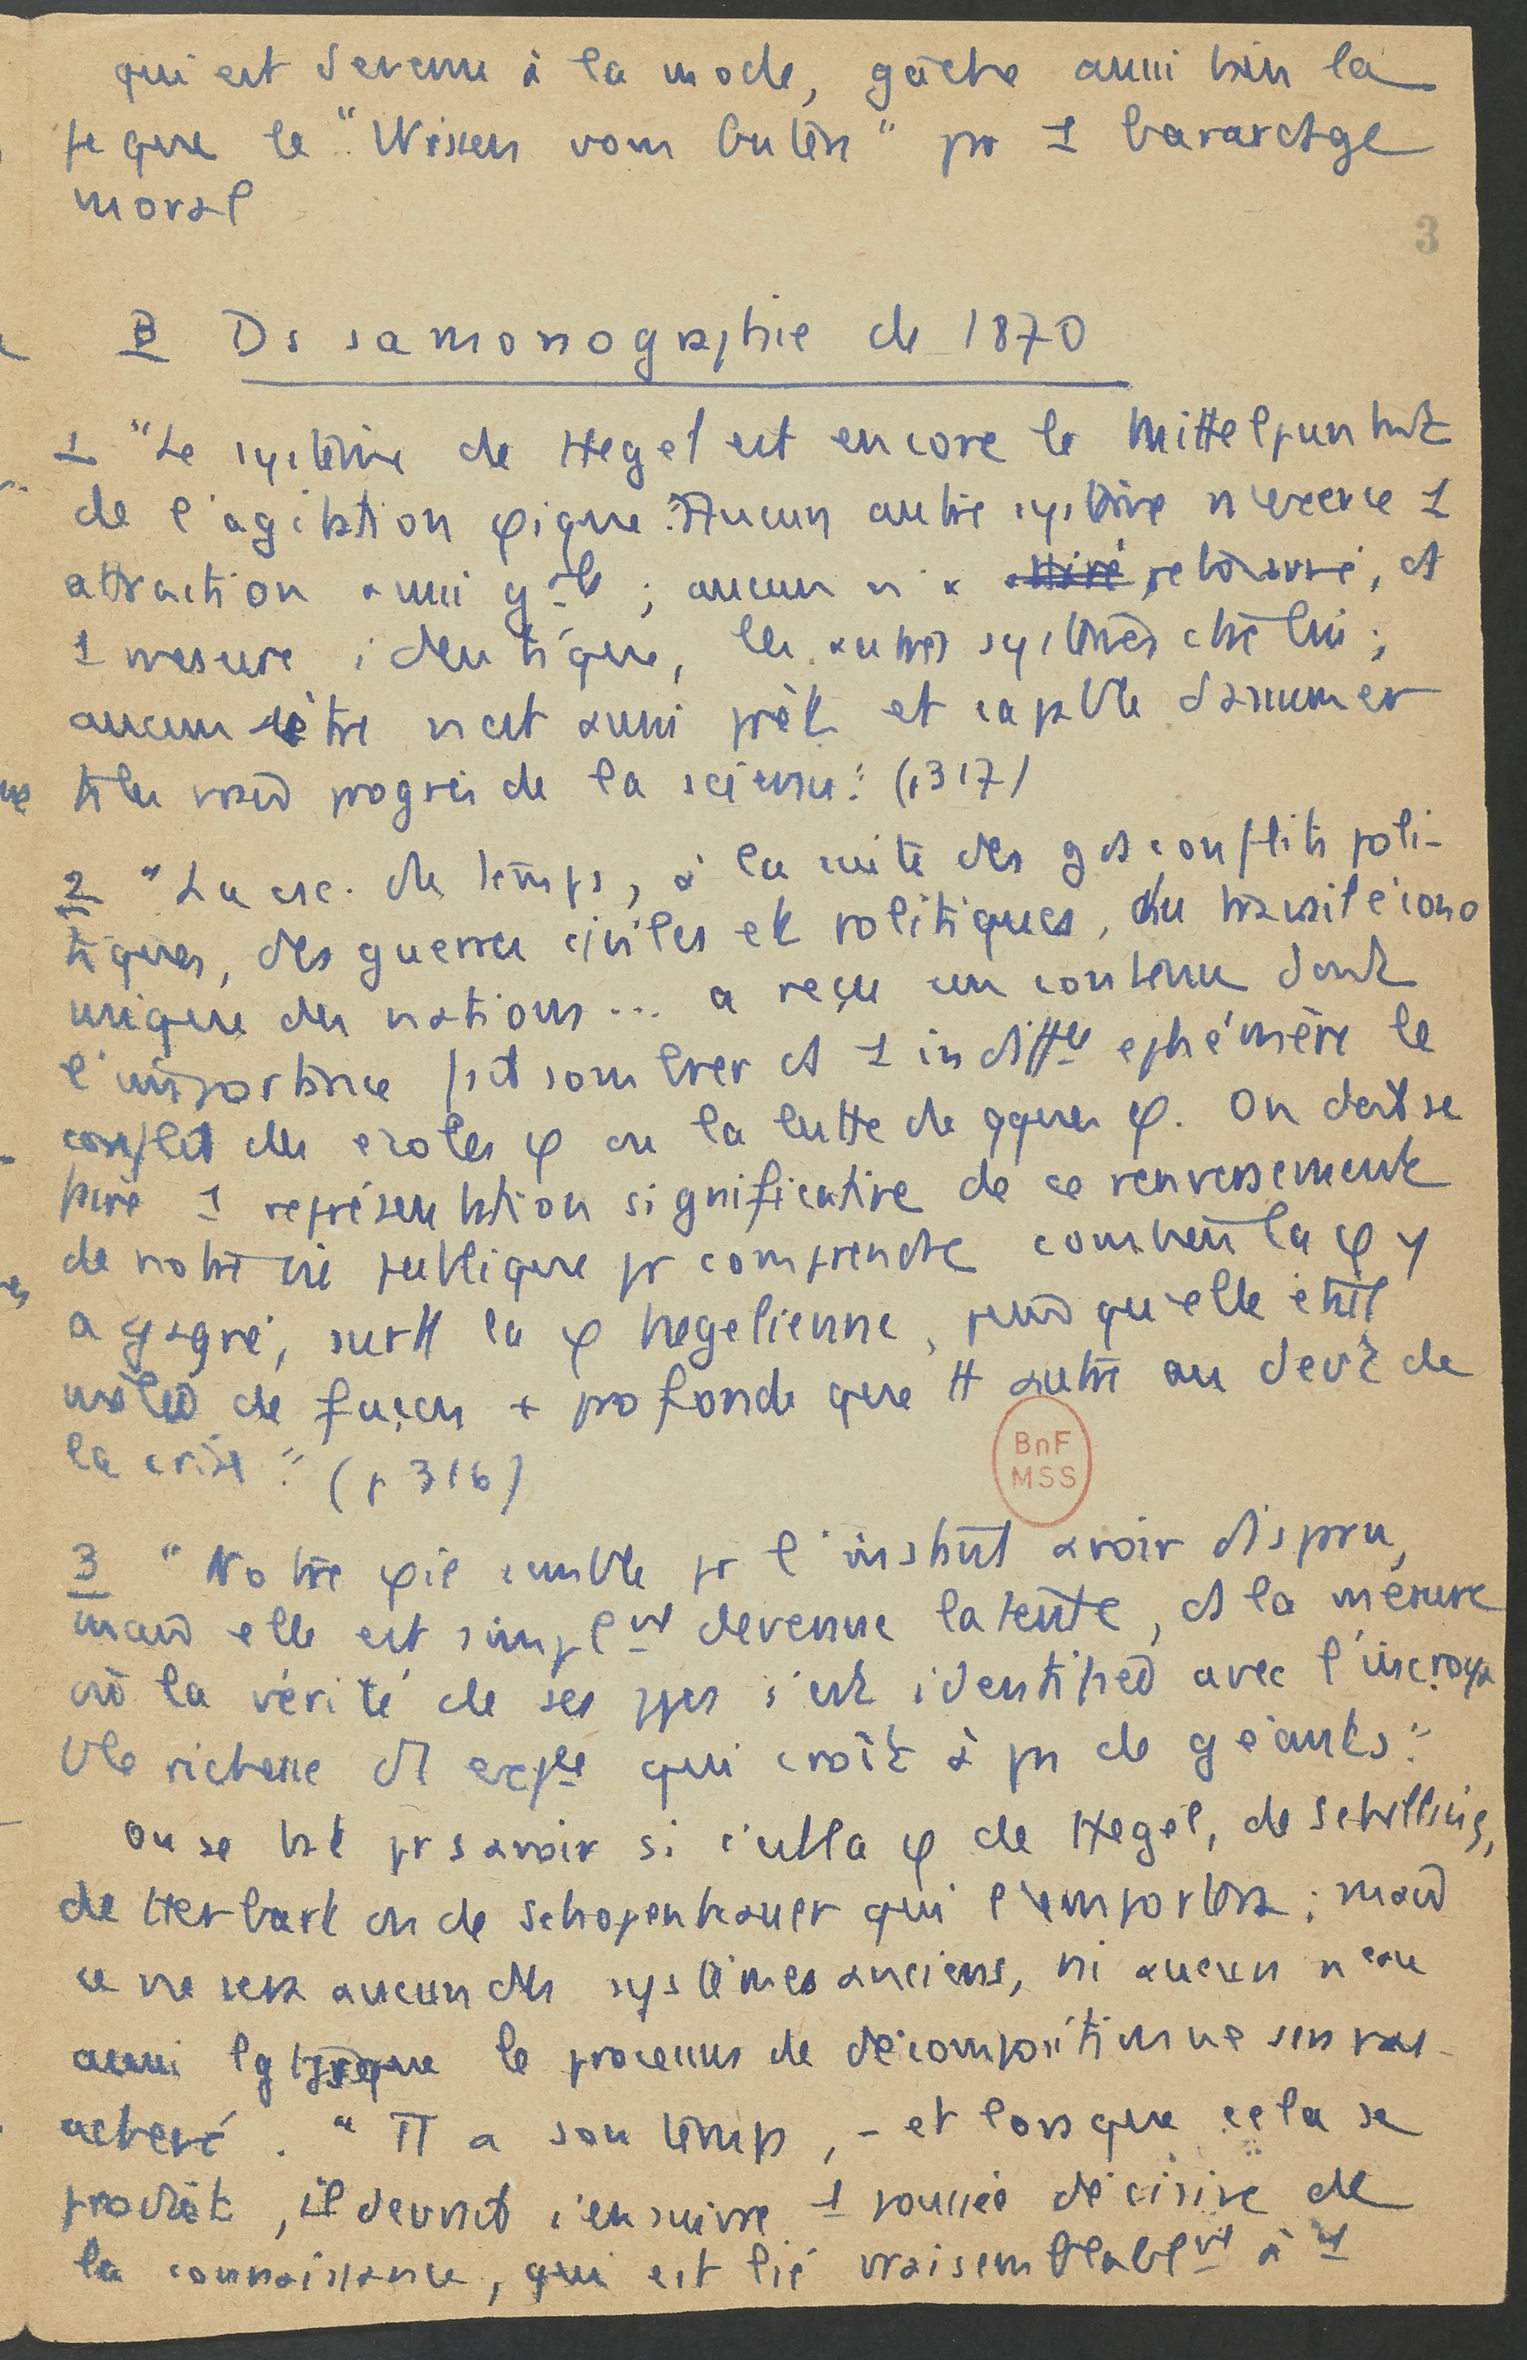 qui est devenu à la mode, gâche aussi bien la
que le "Wissen vom Guten" pr 1 bavardage
moral
3
B Ds sa monographie de 1870
1 "Le système de Hegel est encore le Mittelpunkt
de l'agitation φique. Aucun autre système n'exerce 1
attraction aussi gale ; aucun n'a retourné, ds
1 mesure identique, les autres systèmes ctre lui ;
aucun être n'est aussi prêt et capable d'assumer
ts les vrais progrès de la science." (p 317)
2 "La csc. du temps, à la suite des gds conflits poli-
tiques, des guerres civiles et politiques, du travail écono
mique des nations... a reçu un contenu dont
l'importance fait sombrer ds 1 indiffce éphémère le
conflit des écoles φ ou la lutte de qques φ. On doit se
faire 1 représentation significative de ce renversement
de notre vie publique pr comprendre combien la φ y
a gagné, surtt la φ hegelienne, puisqu'elle était
mêlée de façon + profonde que tt autre au devt de
la crise." (p 316)
BnF
MSS
3 "Notre φie semble pr l'instant avoir disparu,
mais elle est simplmt devenue latente, ds la mesure
où la vérité de ses ppes s'est identifiée avec l'incroya
ble richesse d'expce qui croît à pas de géants."
On se bat pr savoir si c'est la φ de Hegel, de Schelling,
de Herbart ou de Schopenhauer qui l'emportera ; mais
ce ne sera aucun des systèmes anciens, ni aucun neau
aussi lgtps que le processus de décomposition ne sera pas
achevé. "Tt a son temps, - et lorsque cela se
produit, il devrait s'ensuivre 1 poussée décisive de
la connaissance, qui est lié vraisemblablmt à 1